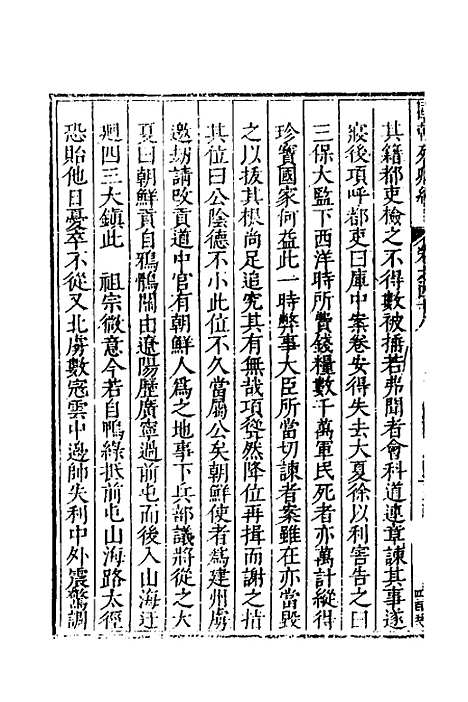 其籍都吏檢之不得數被搒若弗聞者會科道連章諫其事遂
寢後項呼都吏曰庫中案卷安得失去大夏徐以利害告之曰
三保大監下西洋時所費錢糧數千萬軍民死者亦萬計縱得
珍寶國家何益此一時弊事大臣所當切諫者案雖在亦當毀
之以拔其根尚足追究其有無哉項瞿然降位再揖而謝之指
其位曰公陰德不小此位不久當屬公矣朝鮮使者為建州虜
邀刼請改貢道中官有朝鮮人為之地事下兵部議將從之大
夏曰朝鮮貢自鴉鶻關由遼陽歷廣寧過前屯而後入山海迂
迴四三大鎮此 祖宗微意今若自鴨綠抵前屯山海路太徑
恐貽他日憂卒不從又北虜數寇雲中邊師失利中外震驚調